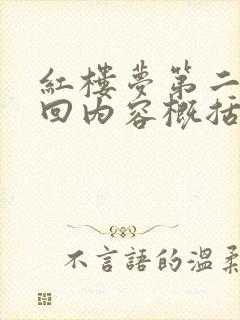 红楼夢第二
回内容概括
不言語的温柔